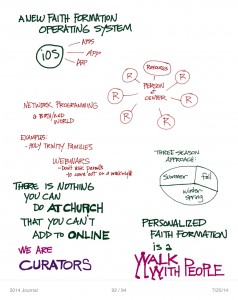 A NEW FAITH FORMATION
OPERATING SYSTEM
iOS
APPS
APP
APP
RESOURCES
R
R
PERSON
at
CENTER
R
R
R
R
R
NETWORK PROGRAMMING
WORLD
EXAMPLES:
- HOLY TRINITY FAMILIES
WEBINARS
- DON'T ASK PARENTS
to come out on a weeknight
THREE-SEASON
APPROACH:
Summer
Fall
Winter-
Spring
THERE IS NOTHING
YOU CAN
DO AT CHURCH
THAT YOU CAN'T
ADD to ONLINE
WE ARE
CURATORS
PERSONALIZED
FAITH FORMATION
is a
WALK
WITH PEOPLE
2014 Journal
92 / 94
7/25/14